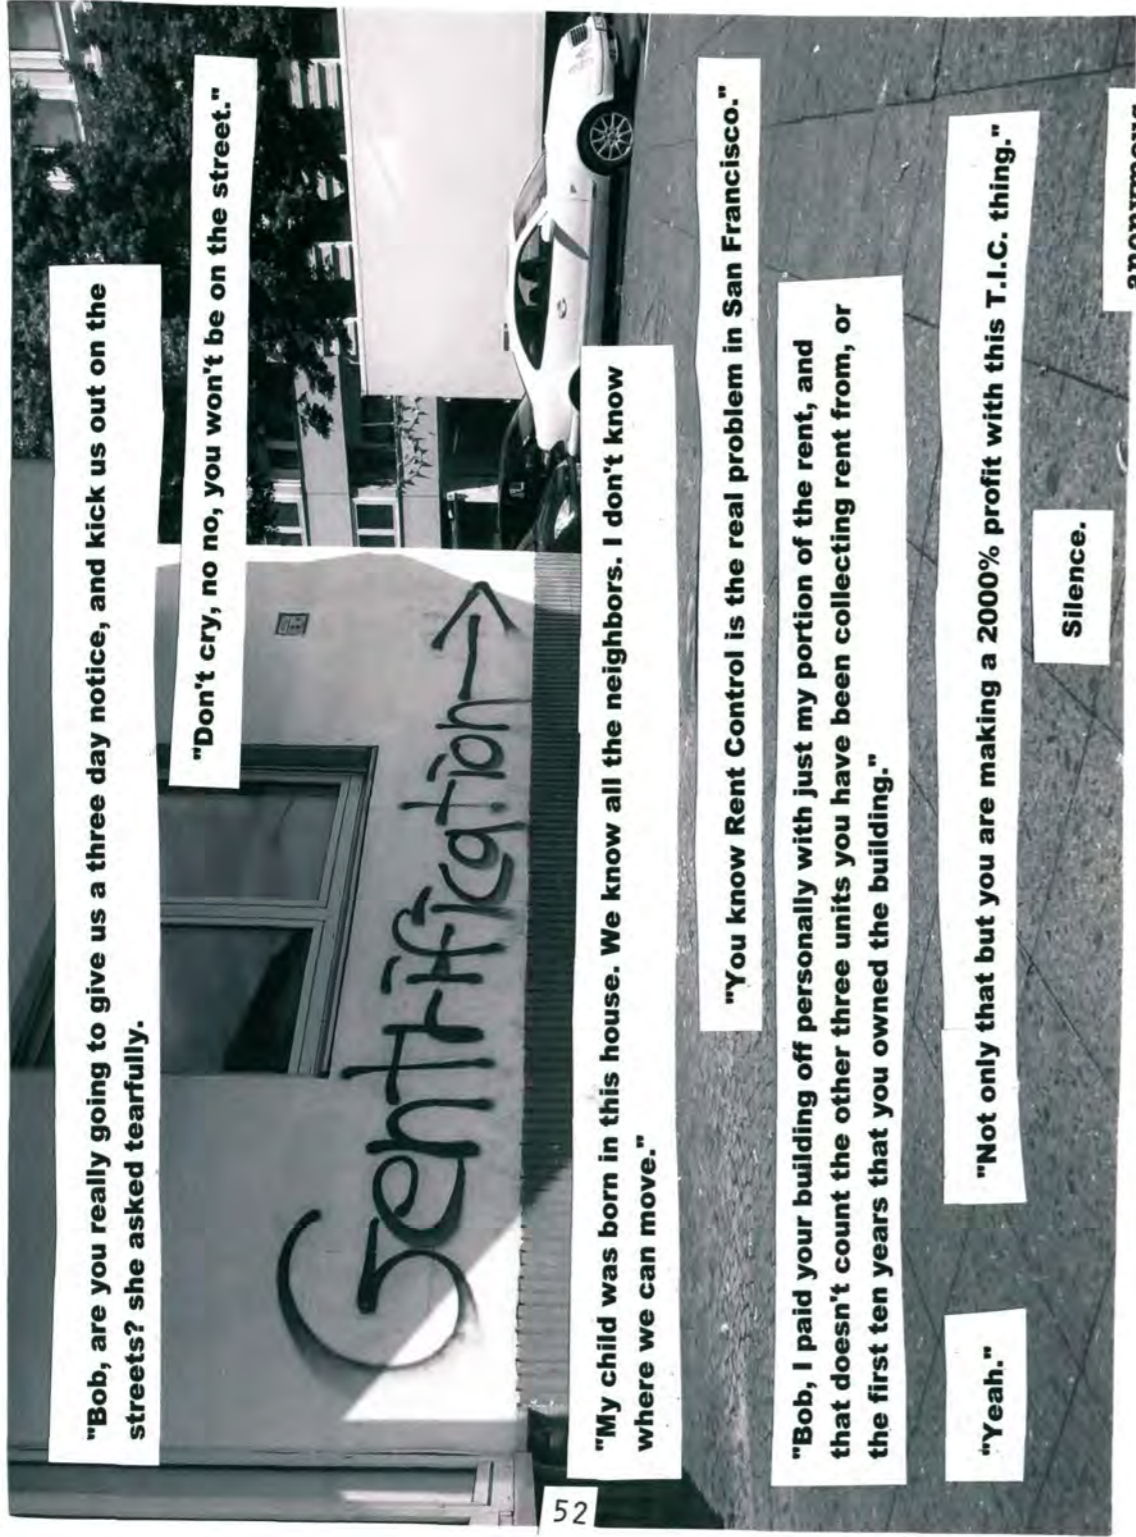 "Bob, are you really going to give us a three day notice, and kick us out on the
streets? she asked tearfully.
"Don't cry, no no, you won't be on the street."
Gentrification
"My child was born in this house. We know all the neighbors. I don't know
where we can move."
"You know Rent Control is the real problem in San Francisco."
"Bob, I paid your building off personally with just my portion of the rent, and
that doesn't count the other three units you have been collecting rent from, or
the first ten years that you owned the building."
"Yeah."
"Not only that but you are making a 2000% profit with this T.I.C. thing."
Silence.
anonymous
52